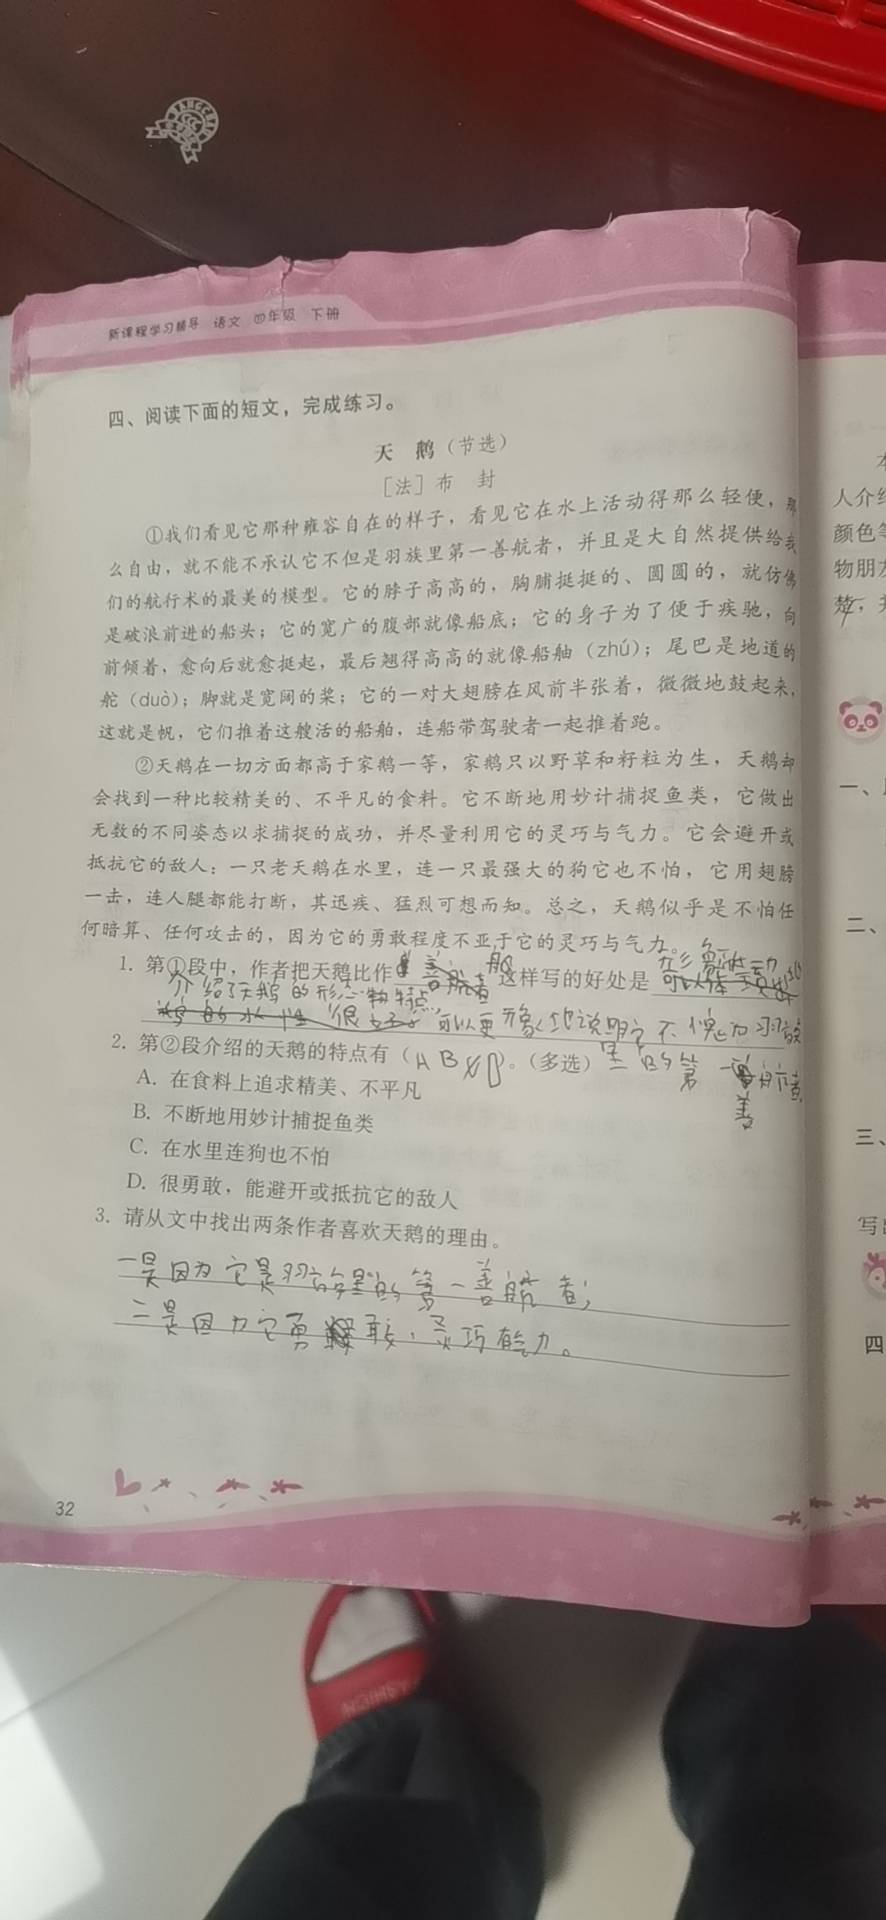 新课程学习辅导 语文 四年级 下册
四、阅读下面的短文，完成练习。
天 鹅（节选）
［法］布 封
①我们看见它那种雍容自在的样子，看见它在水上活动得那么轻便，那
么自由，就不能不承认它不但是羽族里第一善航者，并且是大自然提供给我
们的航行术的最美的模型。它的脖子高高的，胸脯挺挺的、圆圆的，就仿佛
是破浪前进的船头；它的宽广的腹部就像船底；它的身子为了便于疾驰，向
前倾着，愈向后就愈挺起，最后翘得高高的就像船舳（zhú）；尾巴是地道的
舵（duò）；脚就是宽阔的桨；它的一对大翅膀在风前半张着，微微地鼓起来，
这就是帆，它们推着这艘活的船舶，连船带驾驶者一起推着跑。
②天鹅在一切方面都高于家鹅一等，家鹅只以野草和籽粒为生，天鹅却
会找到一种比较精美的、不平凡的食料。它不断地用妙计捕捉鱼类，它做出
无数的不同姿态以求捕捉的成功，并尽量利用它的灵巧与气力。它会避开或
抵抗它的敌人：一只老天鹅在水里，连一只最强大的狗它也不怕，它用翅膀
一击，连人腿都能打断，其迅疾、猛烈可想而知。总之，天鹅似乎是不怕任
何暗算、任何攻击的，因为它的勇敢程度不亚于它的灵巧与气力。
1. 第①段中，作者把天鹅比作 船 这样写的好处是 形象生动
介绍了天鹅的形态特点 可以更形象地说明它不愧为羽族
里的第一善航者
2. 第②段介绍的天鹅的特点有（ABD）。（多选）
A. 在食料上追求精美、不平凡
B. 不断地用妙计捕捉鱼类
C. 在水里连狗也不怕
D. 很勇敢，能避开或抵抗它的敌人
3. 请从文中找出两条作者喜欢天鹅的理由。
一是因为它是羽族里的第一善航者；
二是因为它勇敢，灵巧有能力。
32
人介绍
颜色等
物朋友
楚，并
一、
二、
三、
写出
四